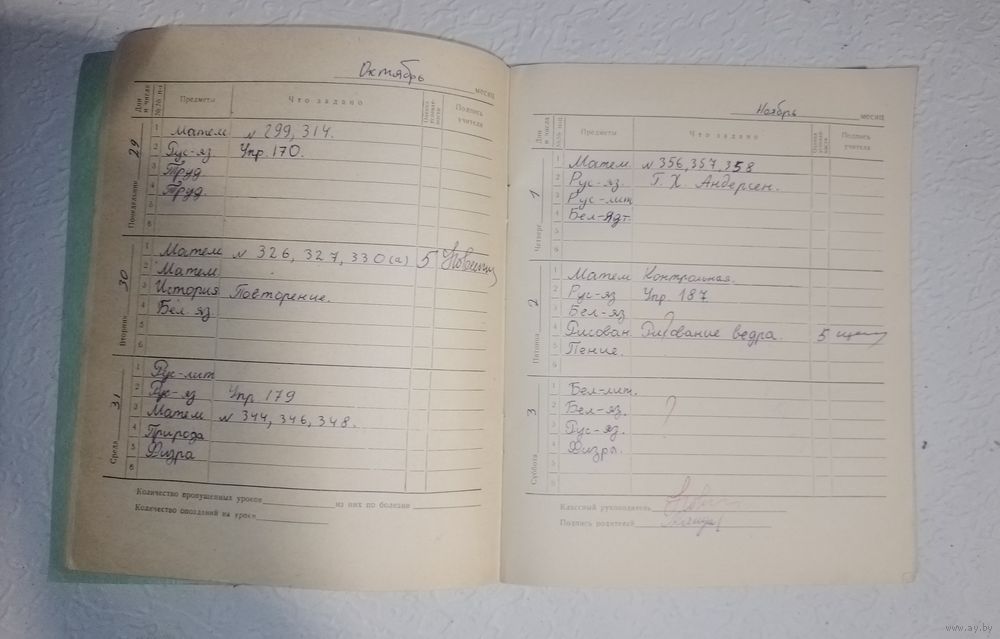 Октябрь месяц
Дни и числа № № п-п Предметы Что задано Оценка успеваемости Подпись учителя
Понедельник 29
1 Матем N 299, 314.
2 Рус-яз. Упр. 170.
3 Труд
4 Труд.
5
6
Вторник 30
1 Матем N 326, 327, 330(а) 5
2 Матем
3 История Повторение.
4 Бел. яз
5
6
Среда 31
1 Рус-лит
2 Рус-яз. Упр 179
3 Матем N 344, 346, 348.
4 Природа
5 Физра
6
Количество пропущенных уроков из них по болезни
Количество опозданий на уроки
Ноябрь месяц
Дни и числа Предметы Что задано Оценка успеваемости Подпись учителя
Четверг 1
1 Матем N 356, 357, 358
2 Рус-яз. Г. Х. Андерсен.
3 Рус-лит
4 Бел-
5
6
Пятница 2
1 Матем Контрольная.
2 Рус-яз Упр. 187
3 Бел-яз ?
4 Рисован Рисование ведра. 5
5 Пение.
6
Суббота 3
1 Бел-лит.
2 Бел-яз. ?
3 Рус-яз.
4 Физры.
5
6
Классный руководитель
Подпись родителей
www.ay.by